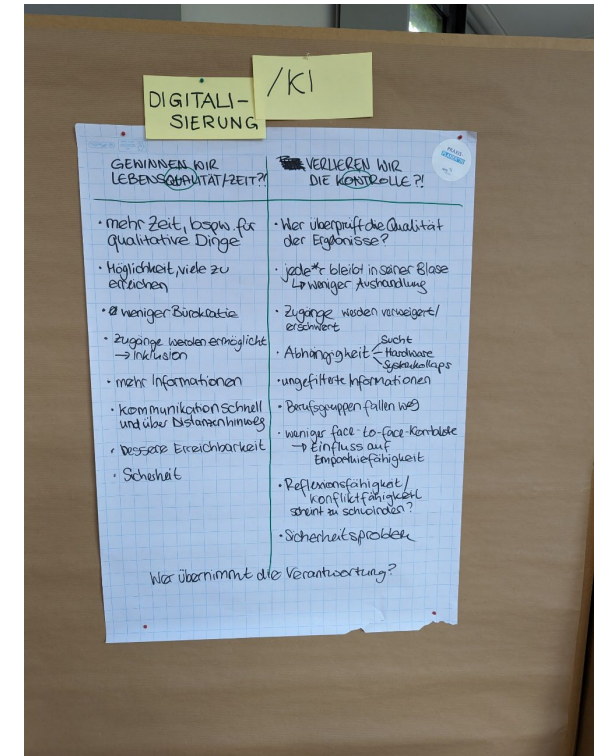 DIGITALI-
SIERUNG
/KI
GEWINNEN WIR
LEBENSQUALITÄT/ZEIT?!
• mehr Zeit, bspw. für
qualitative Dinge
• Möglichkeit, viele zu
erreichen
• weniger Bürokratie
• Zugänge werden ermöglicht
→ Inklusion
• mehr Informationen
• Kommunikation schnell
und über Distanzen hinweg
• bessere Erreichbarkeit
• Sicherheit
VERLIEREN WIR
DIE KONTROLLE?!
• Wer überprüft die Qualität
der Ergebnisse?
• jede*r bleibt in seiner Blase
↳ weniger Aushandlung
• Zugänge werden verweigert/
erschwert
• Abhängigkeit
Sucht
Hardware
Systemkollaps
• ungefilterte Informationen
• Berufsgruppen fallen weg
• weniger face-to-face-Kontakte
→ Einfluss auf
Empathiefähigkeit
• Reflexionsfähigkeit/
Konfliktfähigkeit
scheint zu schwinden?
• Sicherheitsproblem
Wer übernimmt die Verantwortung?